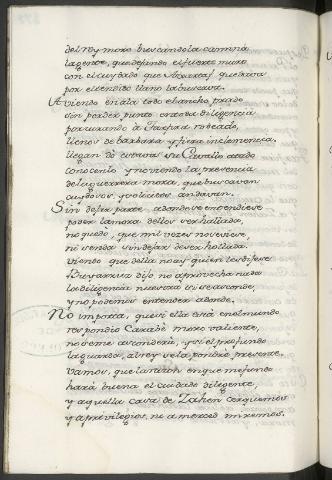 del rey moro buscandola camina
la gente, que defunde el fuerte muro
con el cuydado que Axartaf quedava
por el tendido llano la buscava.
Aviendo en ala todo el ancho prado
sin perder punto en esta diligencia
por mirando à Garçia rodeado,
llenos de barbara y fiera inclemencia,
llegan dò estava su Cavallo atado
conocenlo, y no viendo la presencia
de la guerrera mora, que buscavan
ansiosos, y solicitos andavan.
Sin dejar parte, adonde se entendiese
poder la mora dellos ser hallada,
no quedò, que mil vezes no se viese,
ni senda sin dejar de ser hollada.
viendo que della no ay quien les dijese
dijo, no aprovecha nada
la diligencia nuestra si se asconde,
y no podemos entender adonde.
No importa, que si ella està en el mundo
respondio Caxadè moro valiente,
no se me asconderà, y si el profundo
la guarda, al rey se la pondre presente.
Vamos, que la razon en que me fundo
harà buena el cuidado diligente,
y aquella casa de Zahen cerquemos
y a previlegios, ni a merced miremos.